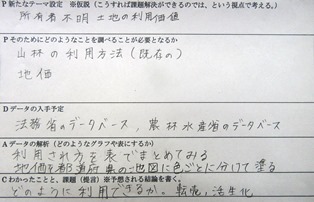 P 新たなテーマ設定 ※仮説（こうすれば課題解決ができるのでは、という視点で考える。）
所有者不明土地の利用価値
P そのためにどのようなことを調べることが必要となるか
山林の利用方法(既存の)
地価
D データの入手予定
法務省のデータベース，農林水産省のデータベース
A データの解析（どのようなグラフや表にするか）
利用され方を表でまとめてみる
地価を都道府県の地図に色ごとに分けて塗る
C わかったことと、課題（提言）※予想される結論を書く。
どのように利用できるか。転呢，活生化